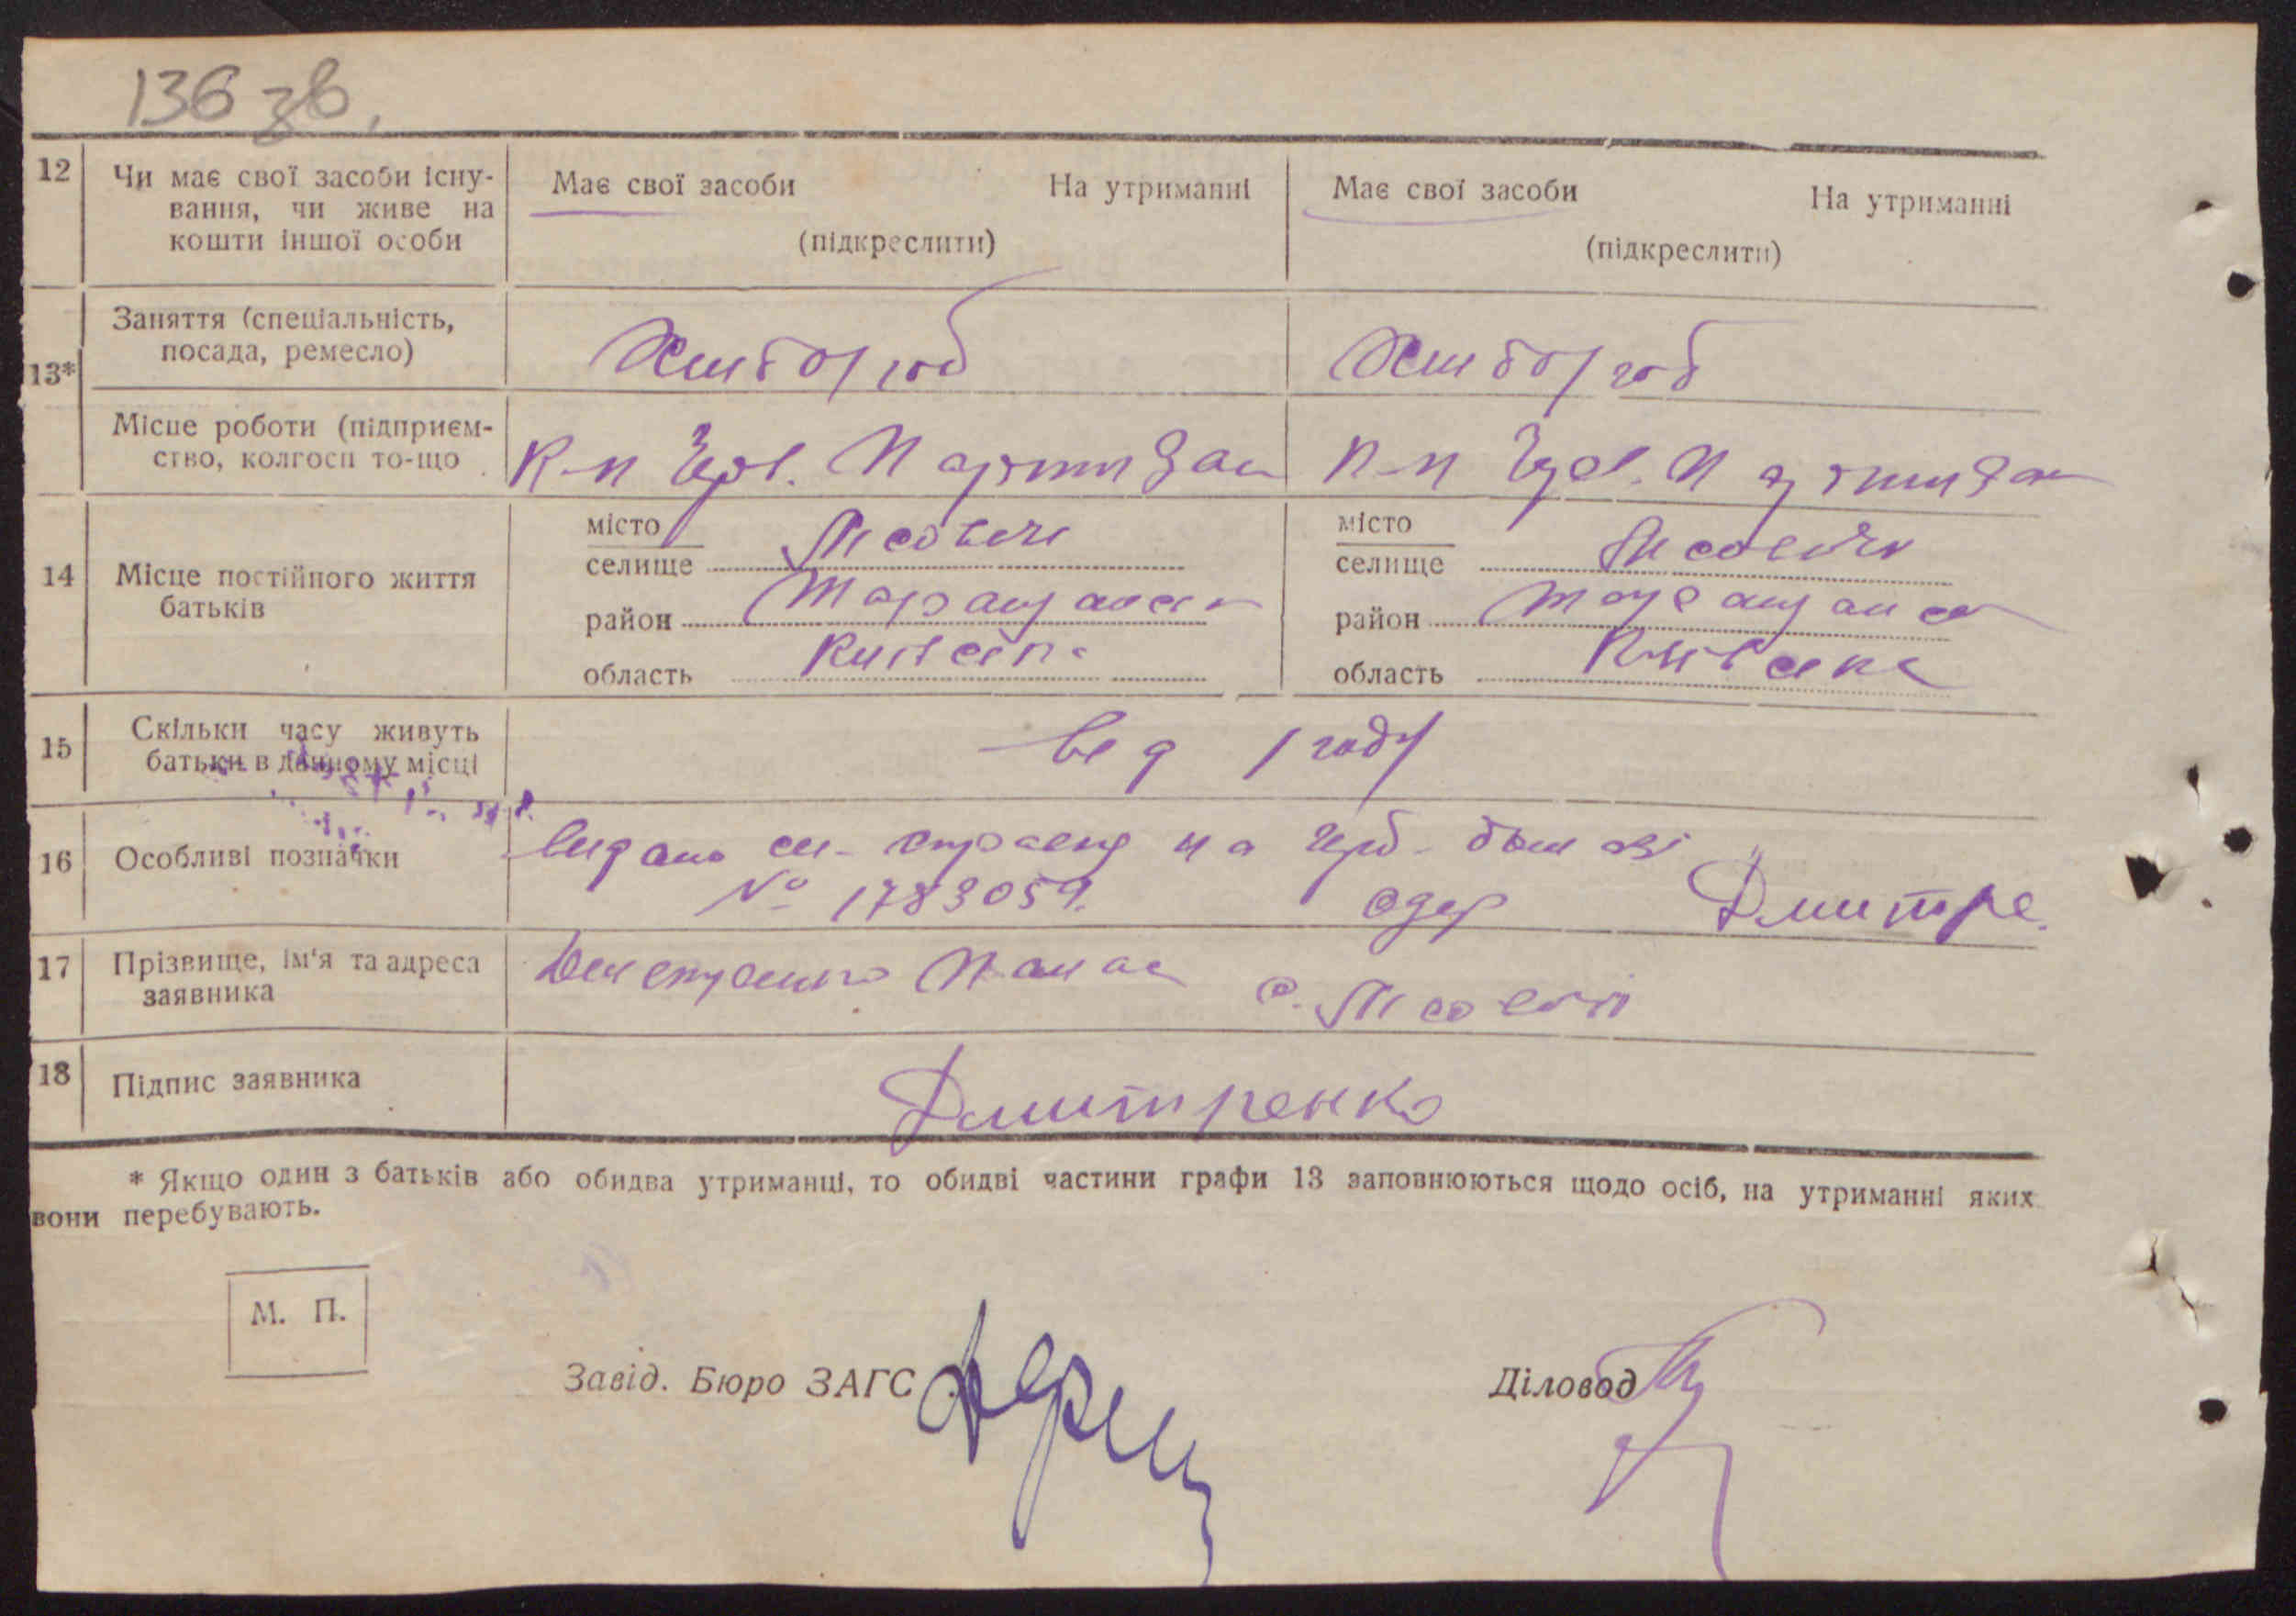 136 зв.
12 Чи має свої засоби існу- Має свої засоби На утриманні Має свої засоби На утриманні
вання, чи живе на
кошти іншої особи (підкреслити) (підкреслити)
13* Заняття (спеціальність,
посада, ремесло) Хлібороб Хлібороб
Місце роботи (підприєм-
ство, колгосп то-що К-п Черв. Партизан К-п Черв. Партизан
14 Місце постійного життя
батьків
місто
селище Лісовичі
район Таращанськ
область Київська
місто
селище Лісовичі
район Таращанськ
область Київська
15 Скільки часу живуть
батьки в данному місці від году
16 Особливі позначки Видано на герб.
№ 1783059. одер Дмитре.
17 Прізвище, ім'я та адреса
заявника Дмитренко Панас с. Лісовичі
18 Підпис заявника Дмитренко
* Якщо один з батьків або обидва утриманці, то обидві частини графи 13 заповнюються щодо осіб, на утриманні яких
вони перебувають.
М. П.
Завід. Бюро ЗАГС Діловод